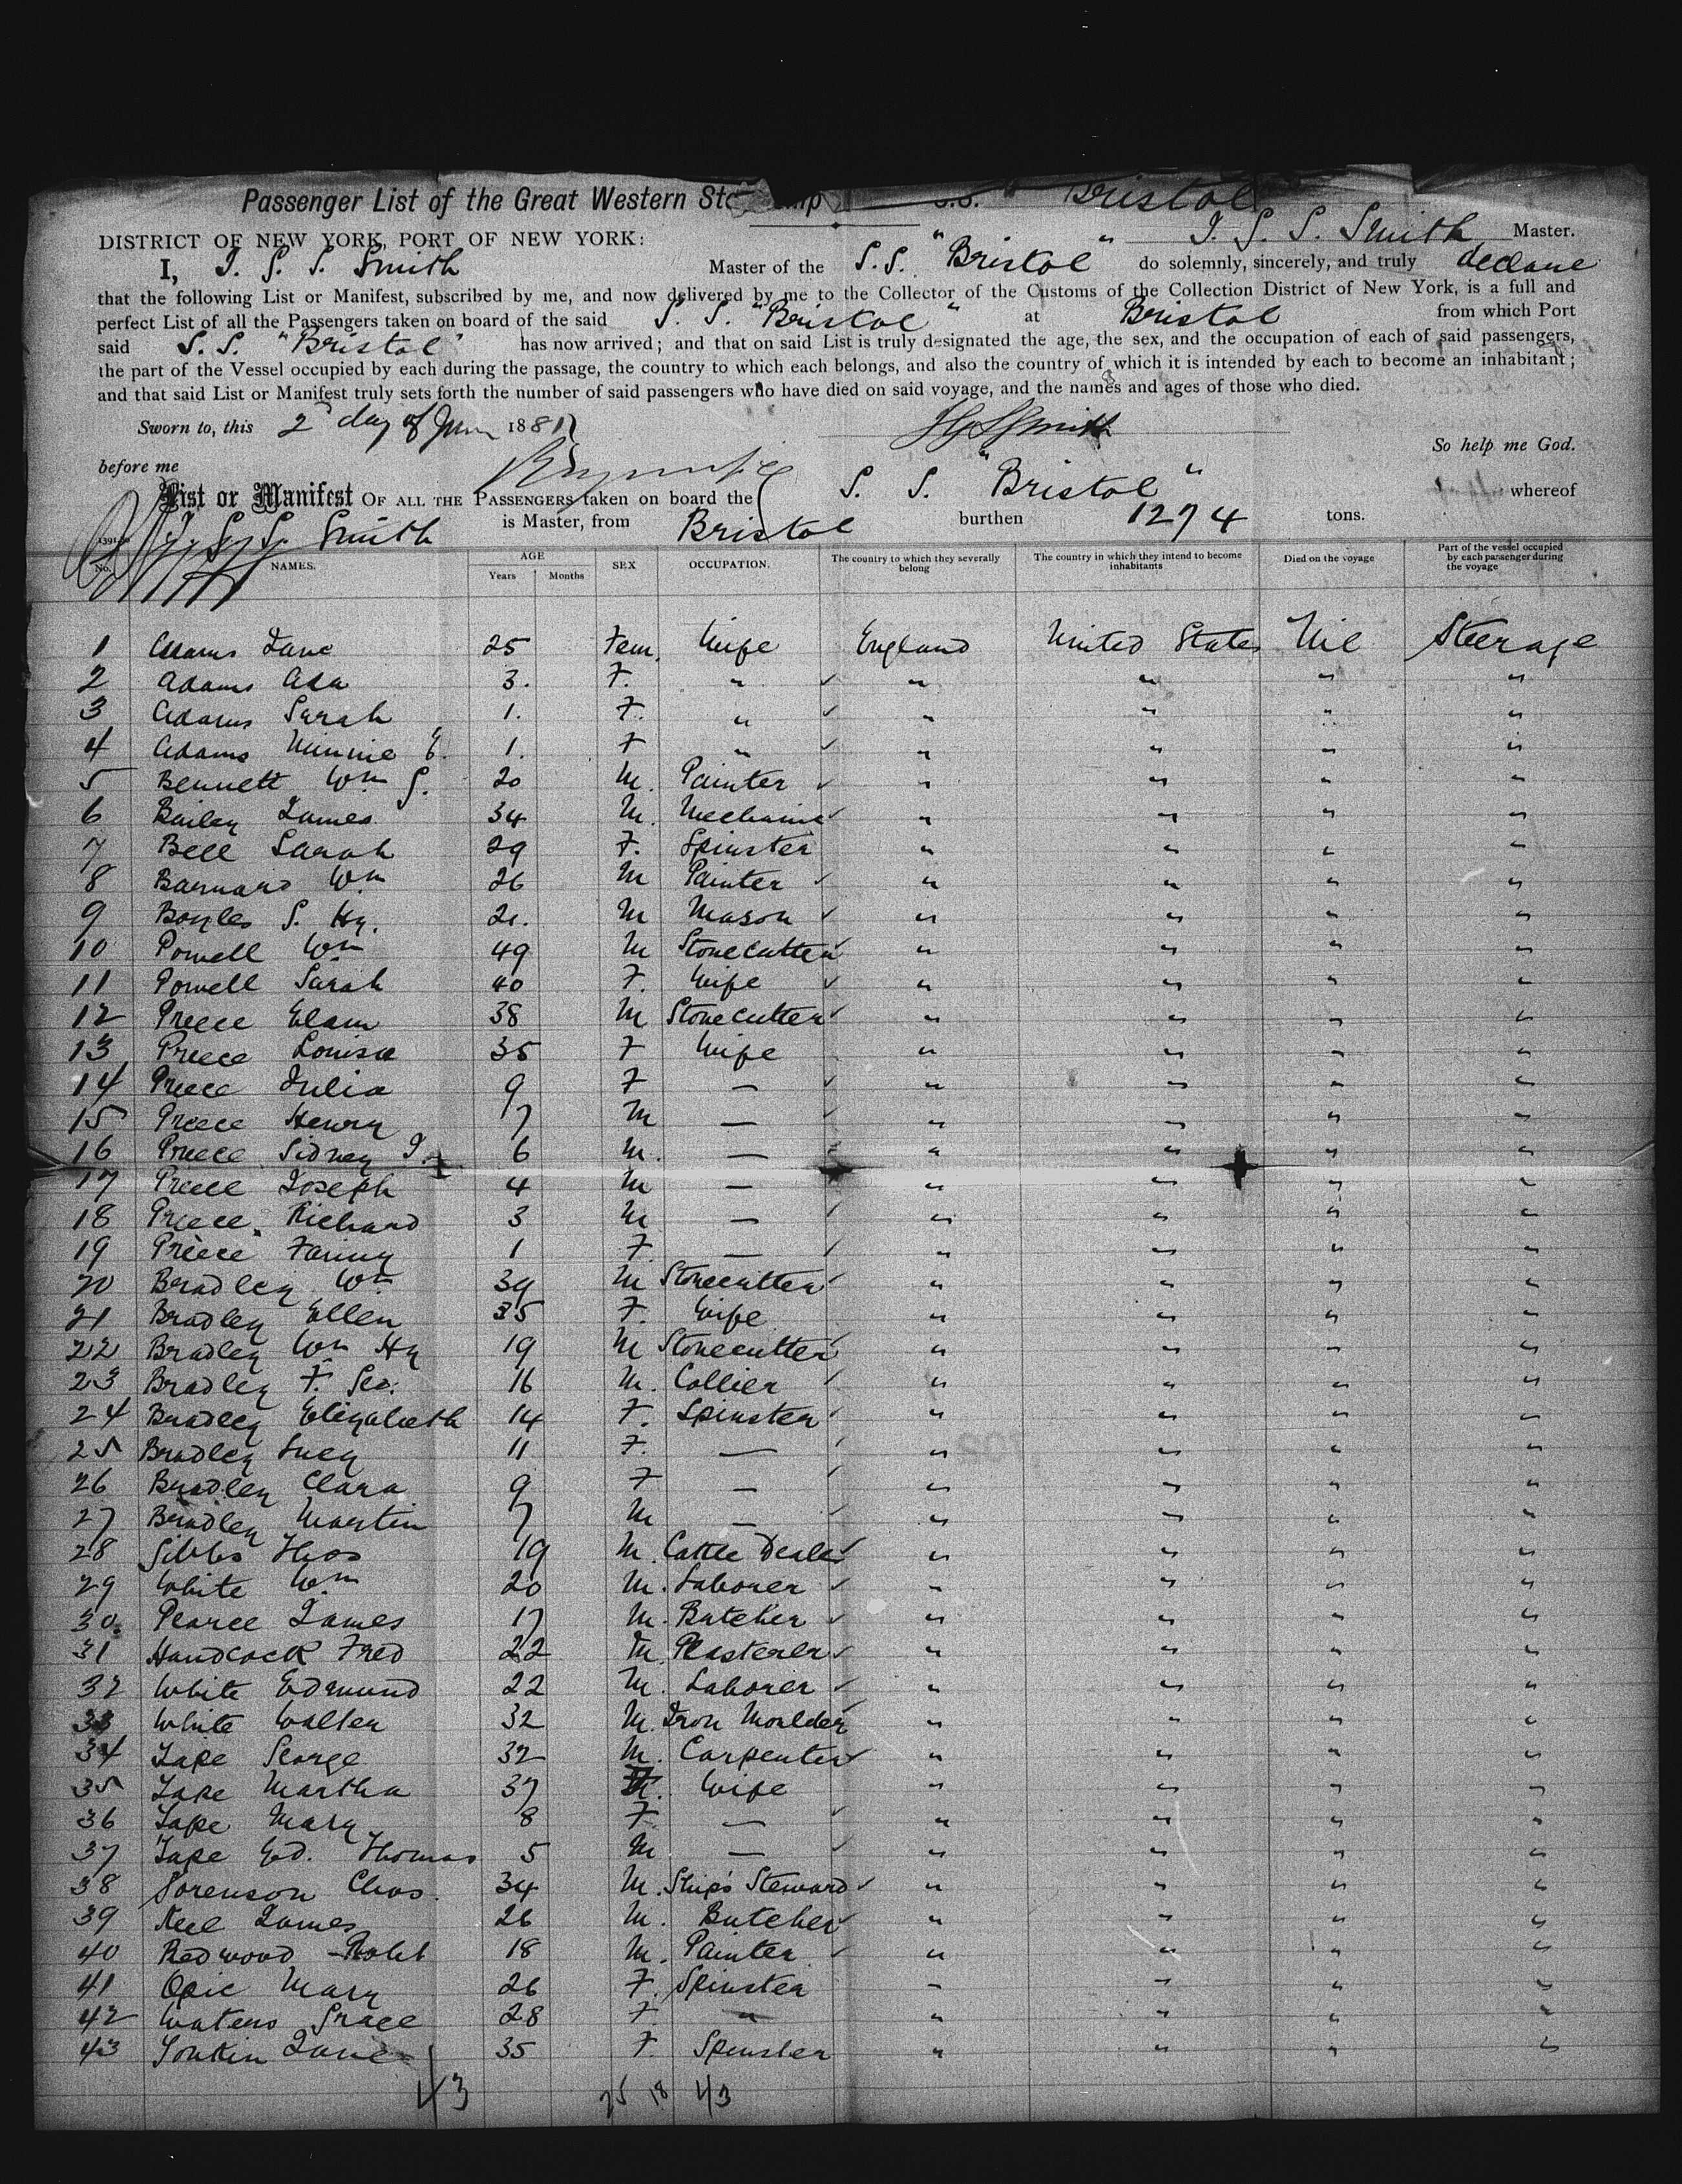 Passenger List of the Great Western S.S. "Bristol"
DISTRICT OF NEW YORK, PORT OF NEW YORK: J. G. S. Smith Master.
I, J. G. S. Smith Master of the S.S. "Bristol" do solemnly, sincerely, and truly declare
that the following List or Manifest, subscribed by me, and now delivered by me to the Collector of the Customs of the Collection District of New York, is a full and
perfect List of all the Passengers taken on board of the said S. S. "Bristol" at Bristol from which Port
said S. S. "Bristol" has now arrived; and that on said List is truly designated the age, the sex, and the occupation of each of said passengers,
the part of the Vessel occupied by each during the passage, the country to which each belongs, and also the country of which it is intended by each to become an inhabitant;
and that said List or Manifest truly sets forth the number of said passengers who have died on said voyage, and the names and ages of those who died.
Sworn to, this 2d day of 188 Smith
So help me God.
before me
List or Manifest OF ALL THE PASSENGERS taken on board the S. S. "Bristol" whereof
J. G. S. Smith is Master, from Bristol burthen 1274 tons.
No. NAMES. AGE Years Months SEX OCCUPATION. The country to which they severally belong The country in which they intend to become inhabitants Died on the voyage Part of the vessel occupied by each passenger during the voyage
1 Adams Jane 25 Fem. Wife England United States Nil Steerage
2 Adams Ada 3. F. " " " " "
3 Adams Sarah 1. F. " " " " "
4 Adams Minnie E. 1. F " " " " "
5 Bennett Wm G. 20 M. Painter " " " "
6 Bailey James 34 M. Mechanic " " " "
7 Bell Sarah 29 F. Spinster " " " "
8 Barnard Wm 26 M Painter " " " "
9 Boyles S. Hy. 21. M Mason " " " "
10 Powell Wm 49 M Stonecutter " " " "
11 Powell Sarah 40 F. Wife " " " "
12 Preece Elam 38 M Stonecutter " " " "
13 Preece Louisa 35 F Wife " " " "
14 Preece Julia 9 F — " " " "
15 Preece Henry 7 M — " " " "
16 Preece Sidney J. 6 M. — " " " "
17 Preece Joseph 4 M — " " " "
18 Preece Richard 3 M — " " " "
19 Preece Fanny 1 F. — " " " "
20 Bradley Wm 39 M Stonecutter " " " "
21 Bradley Ellen 35 F. Wife " " " "
22 Bradley Wm Hy 19 M Stonecutter " " " "
23 Bradley F. Geo. 16 M. Collier " " " "
24 Bradley Elizabeth 14 F. Spinster " " " "
25 Bradley Lucy 11 F. — " " " "
26 Bradley Clara 9 F — " " " "
27 Bradley Martin 7 M — " " " "
28 Gibbs Thos 19 M. Cattle Dealer " " " "
29 White Wm 20 M. Laborer " " " "
30. Pearce James 17 M. Butcher " " " "
31 Handcock Fred 22 M. Plasterer " " " "
32 White Edmund 22 M. Laborer " " " "
33 White Walter 32 M. Iron Moulder " " " "
34 Tape George 32 M. Carpenter " " " "
35 Tape Martha 37 F. Wife " " " "
36 Tape Mary 8 F — " " " "
37 Tape Ed. Thomas 5 M — " " " "
38 Sorenson Chas. 34 M. Ship's Steward " " " "
39 Keel James 26 M. Butcher " " " "
40 Redwood Robt 18 M. Painter " " " "
41 Opie Mary 26 F. Spinster " " " "
42 Waters Grace 28 F. " " " " "
43 Tonkin Jane 35 F. Spinster " " " "
43 25 18 43